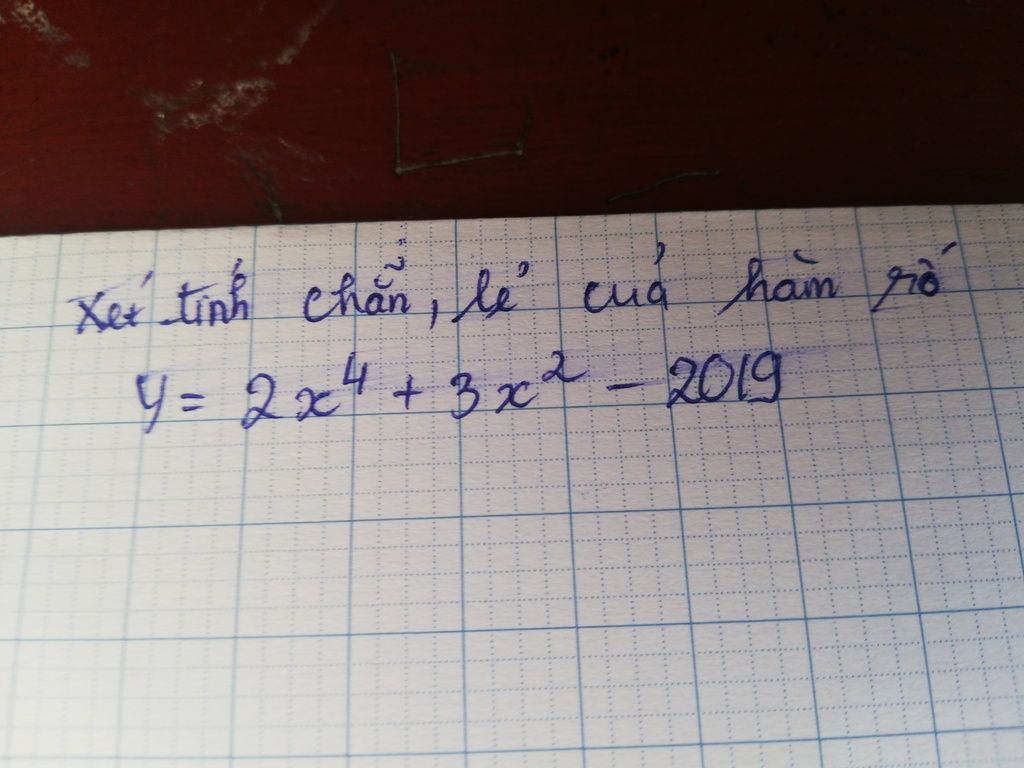 Xét tính chẵn, lẻ của hàm số
y = 2x⁴ + 3x² - 2019